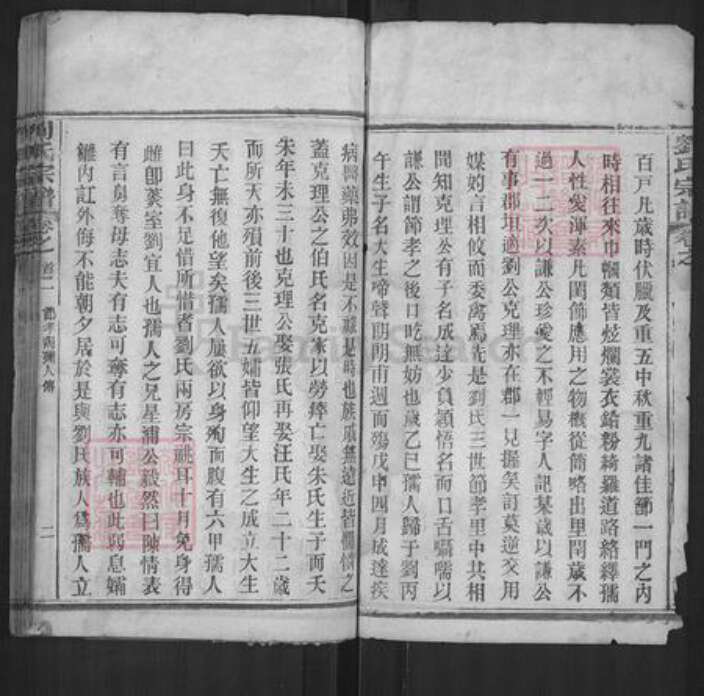 劉氏宗譜 卷之
百戸凡歲時伏臘及重五中秋重九諸佳節一門之內
時相往來巾幗類皆炫爛裳衣鉛粉綺羅道路絡繹孺
人性 渾素凡閨飾應用之物概從簡略出里閈歲不
過一二次以謙公珍愛之不輕易字人記某歲以謙公
有事郡垣適劉公克理亦在郡一見握矣訂莫逆交用
媒妁言相傚而委禽焉先是劉氏三世節孝里中共相
聞知克理公有子名成達少負穎悟名而口舌囁嚅以
謙公謂節孝之後口吃無妨也歲乙巳孺人歸于劉丙
午生子名大生啼聲朗朗甫週而殤戊申四月成達疾
病醫藥弗效因是不祿是時也族戚無遠近皆 之
蓋克理公之伯氏名克家以勞瘁亡娶朱氏生子而夭
朱年未三十也克理公娶張氏再娶汪氏年二十二歲
而所天亦殞前後三世五孀皆仰望大生之成立大生
夭亡無復他望矣孺人屢欲以身殉而腹有六甲孺人
曰此身不足惜所惜者劉氏兩房宗祧耳十月免身得
雌卽蓂室劉宜人也孺人之兄星浦公毅然曰陳情表
有言舅奪母志夫有志可奪有志亦可輔也此弱息孀
雛內訌外侮不能朝夕居於是與劉氏族人爲孺人立
劉氏宗譜 卷之 首二 節孝 孺人傳 二